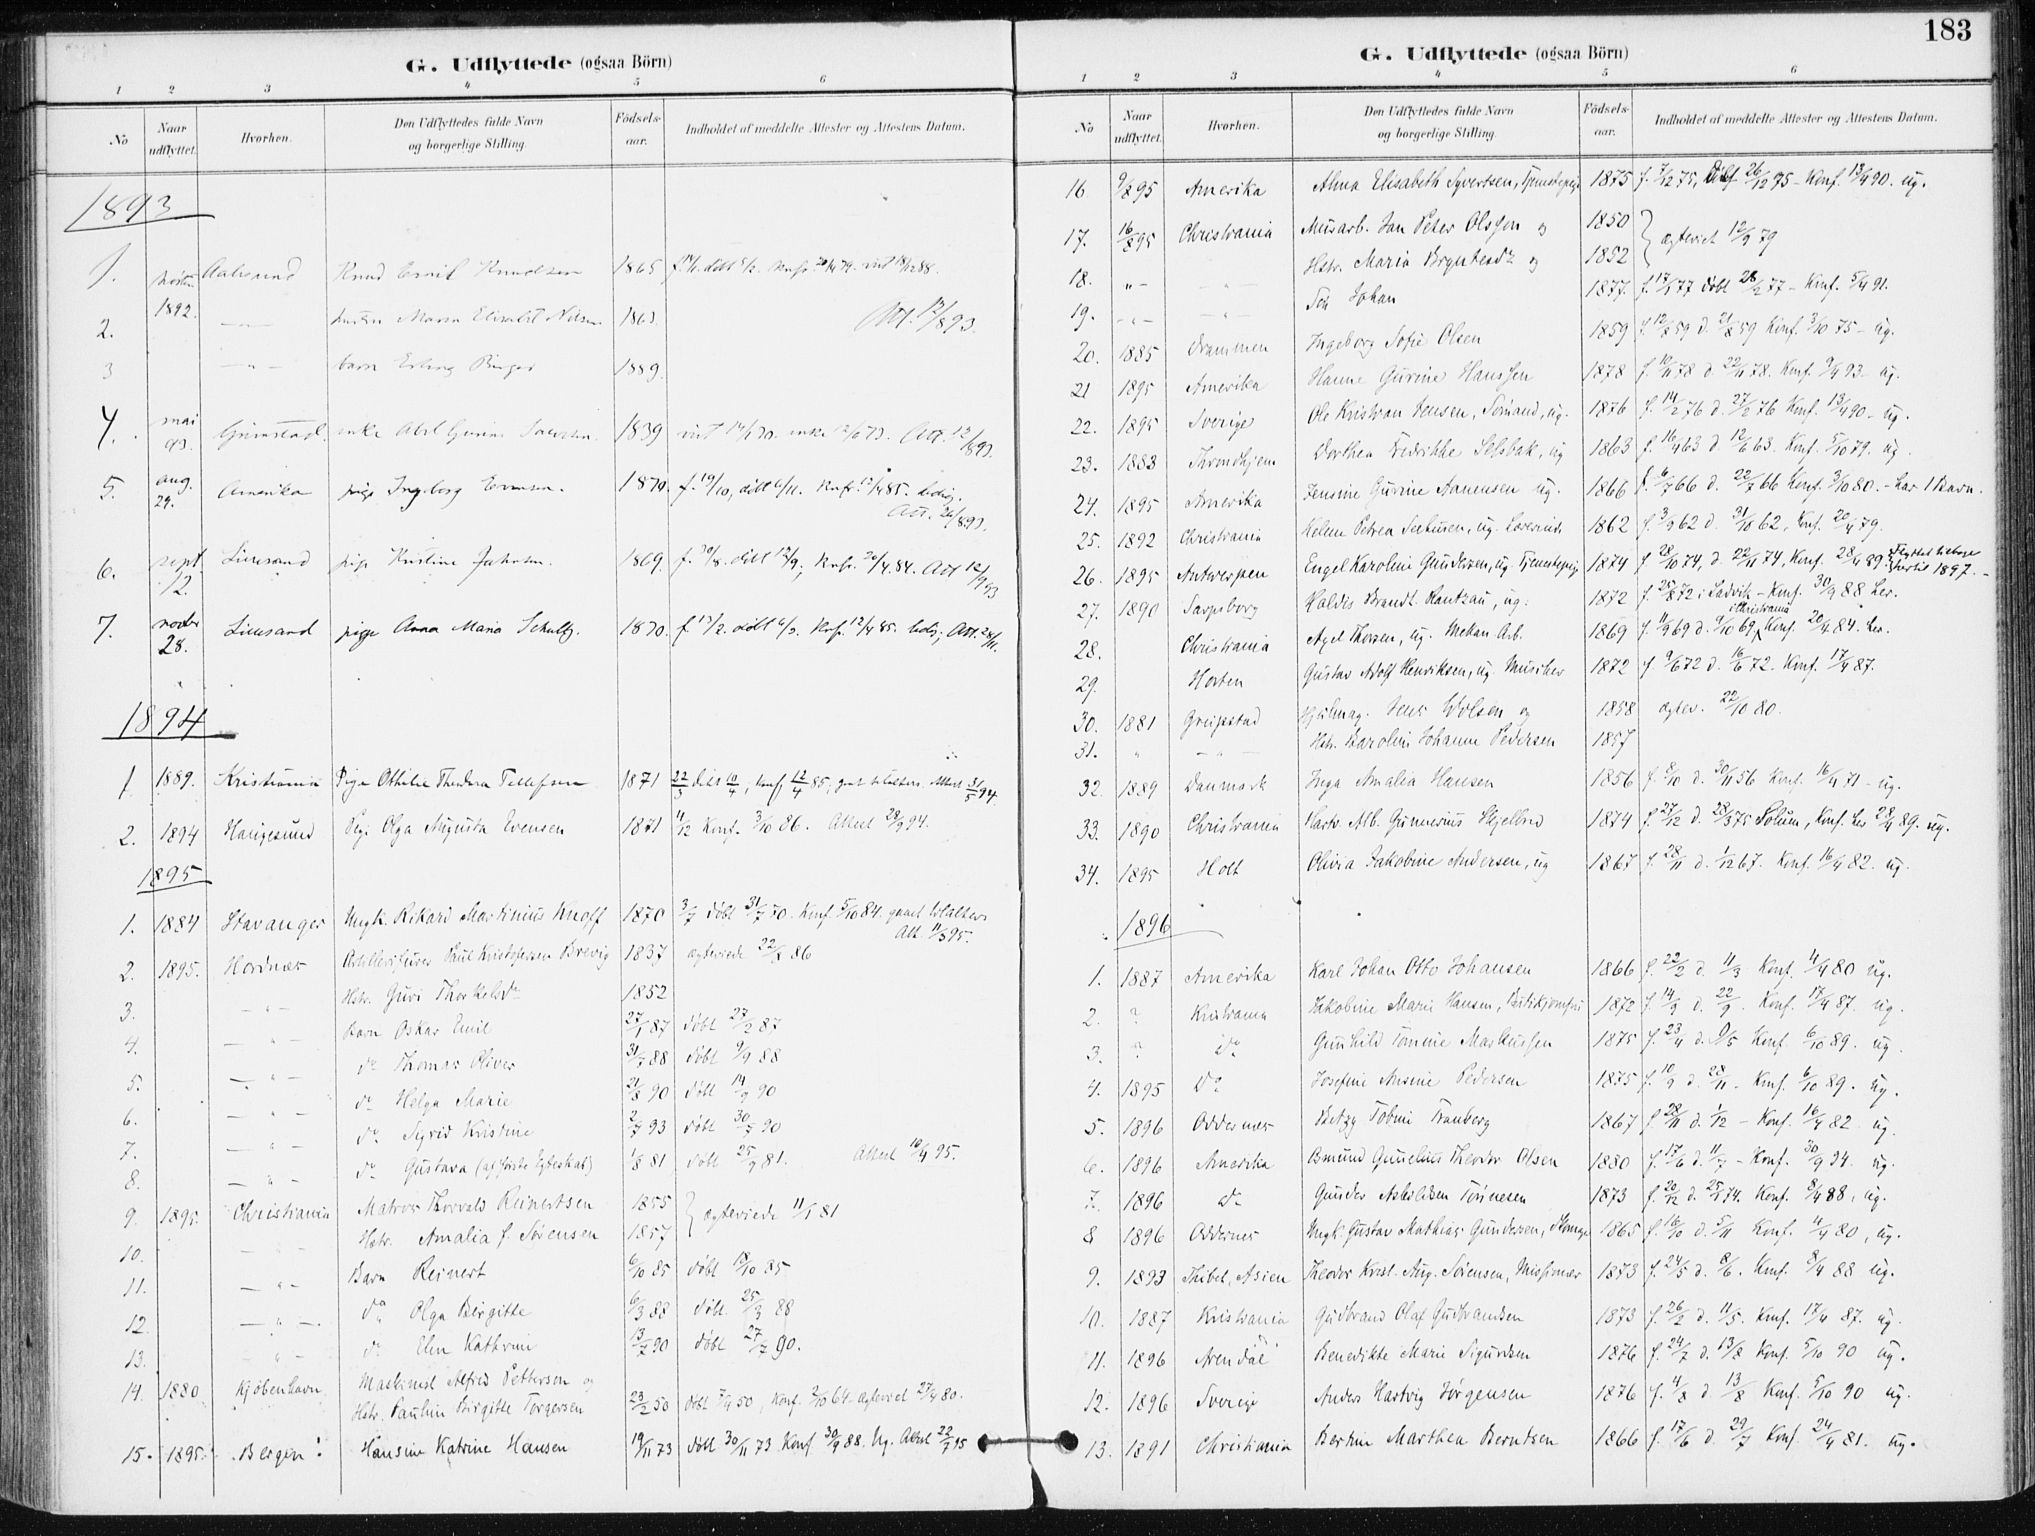 183
G. Udflyttede (ogsaa Börn)
1 2 3 4 5 6
No Naar udflyttet. Hvorhen. Den Udflyttedes fulde Navn og borgerlige Stilling. Födsels-aar. Indholdet af meddelte Attester og Attestens Datum.
1893
1. 1892. Aalesund Knud Emil Knudsen 1865
2. Maren Elisabet Nilsen Att. 12/8 93.
3 barn Erling Birger 1889.
4. mai 93. Grimstad. enke 1839 Att. 12/8 93.
5. aug. 24. Amerika pige Ingeborg Evensen. 1870. f. 19/10, döbt 6/11. Konfr. 12/4 85. ledig. Att. 24/8 93.
6. sept 12. Lillesand pige Kristine Jakobsen. 1869. f. 30/8. döbt 12/9, Konfr. 20/4.84. Att 12/9 93
7. novbr 28. Lillesand pige Anna Maria Schultz. 1870. f. 13/2. döbt 6/3. Konf. 12/4 85. ledig. Att. 28/11.
1894
1 1889. Kristiania Pige Othilie Theodora Tellefsen 1871 22/3 döbt 10/4, Konf 12/4 85, Attest 31/5 94.
2. 1894 Haugesund Pige Olga Augusta Evensen 1871 4/12 Konf. 3/10 86. Attest 29/9 94.
1895
1. 1884 Stavanger Ungk. Rikard Martinius Knoff 1870 3/7 döbt 31/7 70. Konf. 5/10 84. gaaet til alters Att. 11/3 95.
2. 1895. Hisønes Paul Kristofersen Brevig 1837 egteviede 22/8 86
3. — " — Hstr. Guri Thorkelsdr 1852
4. — " — Barn Oskar Emil 27/1 87 döbt 27/2 87
5. — " — do Thomas Oliver 31/7 88 döbt 9/9 88
6. — " — do Helga Marie 21/8 90 döbt 14/9 90
7. — " — do Sigrid Kristine 2/7 93 döbt 30/7 90
8. — " — do Gustava (af förste Egteskab) 1/8 81 döbt 25/9 81. Attest 10/4 95.
9. 1895. Christiania Matros Thorvald Reinertsen 1855 egteviede 11/1 81
10. Hstr. Amalia f. Sörensen 1857
11. — " — Barn Reinert 6/10 85 döbt 18/10 85
12. — " — do Olga Birgitte 6/3 88 döbt 25/3 88
13. " do Elen Kathrine 13/7 90 döbt 27/7 90.
14. 1880 Kjöbenhavn Maskinist Alfred Pettersen og
Hstr. Pauline Birgitte Torgersen 23/2 50 döbt 7/4 50, Konf. 2/10 64. Egteviet 27/4 80.
15. 1895. Bergen. Hansine Katrine Hansen 19/11 73 döbt 30/11 73 Konf 30/9 88. Ug. Attest 22/7 95
G. Udflyttede (ogsaa Börn)
1 2 3 4 5 6
No Naar udflyttet. Hvorhen. Den Udflyttedes fulde Navn og borgerlige Stilling. Födsels-aar. Indholdet af meddelte Attester og Attestens Datum.
16 9/8 95 Amerika Alma Elisabeth Syvertsen, Tjenestepige 1875 f. 7/12 75, Döbt 26/12 75 - Konf. 13/4 90. ug.
17. 16/8 95 Christiania Murarb. Jan Peter Olsson og 1850 egteviet 12/9 79
18. " — Hstr. Maria og 1852
19. — " — Sön Johan 1877. f. 17/1 77 döbt 28/2 77 - Konf. 5/4 91.
20. 1885 Drammen Ingeborg Sofie Olsen 1859 f. 12/8 59 d. 21/8 59 Konf. 3/10 75 - ug.
21 1895 Amerika Hanne Gurine Hanssen 1878 f. 10/11 78 d. 22/11 78. Konf. 9/4 93 - ug.
22. 1895 Sverige Ole Kristian Jensen, Sömand, ug. 1876 f. 14/2 76 d. 27/2 76 Konf. 13/4 90 - ug.
23. 1883 Throndhjem Dorthea Fredrikke Selsbak, ug 1863 f. 16/4 63 d. 12/6 63. Konf. 5/10 79. ug
24. 1895 Amerika Jensine Gurine Aanensen ug. 1866 f. 6/7 66 d. 22/7 66 Konf. 3/10 80. - har 1 Barn.
25. 1892 Christiania Helene Petrea ug. 1862 f. 3/9 62 d. 31/10 62, Konf. 20/4 79.
26. 1895 Antwerpen Engel Karoline Gundersen, ug. Tjenestepige 1874 f. 28/10 74, d. 22/11 74, Konf. 28/4 89. Flyttet tilbage hertil 1897.
27. 1890 Sarpsborg Haldis Brandt Rantzau, ug. 1872 f. 25/8 72 i Ladvik - Konf. 30/9 88 her.
28. Christiania Axel Thorsen, ug. Mekan. Arb. 1869 f. 11/9 69 d. 9/10 69, i Christiania Konf. 20/4 84. her.
29. Horten Gustav Adolf Henriksen, ug. Musiker 1872 f. 9/6 72 d. 16/6 72. Konf. 17/4 87.
30. 1881 Greipstad Hjulmag. Jens Wolsen og 1858 egtev. 22/10 80.
31. " — " — Hstr. Karoline Johanne Pedersen 1857
32. 1889 Danmark Inga Amalia Hansen 1856 f. 8/10 d. 30/11 56 Konf. 16/4 71 - ug.
33. 1890 Christiania Hartv. Alb. Gunnerius Skjelbred 1874 f. 27/12 d. 28/3 75 Solum, Konf. her 28/4 89. ug.
34. 1895 Holt Olivia Jakobine Andersen, ug 1867 f. 28/11 d. 1/12 67. Konf. 16/4 82. ug.
1896
1. 1887 Amerika Karl Johan Otto Johansen 1866 f. 22/2 d. 11/3 Konf. 4/4 80 ug.
2. ? Kristiania Jakobine Marie Hansen, Butikjomfru 1872 f. 14/9 d. 22/9. Konf. 17/4 87. ug.
3. ? do Gunhild Tomine Markussen 1875 f. 23/4 d. 9/5 Konf. 6/10 89. ug
4. 1895 do Josefine Ansine Pedersen 1875 f. 10/9 d. 28/11. Konf. 6/10 89. ug.
5. 1896 Oddernes Betzy Tobine Tranberg 1867 f. 28/11 d. 1/12 - Konf. 16/4 82 ug.
6. 1896 Amerika Theodor Olsen 1880 f. 17/6 d. 11/7 - Konf. 30/9 94. ug.
7. 1896 do Gunder Asboldsen Tönnesen 1873 f. 20/12 d. 25/1 74. Konf. 8/4 88, ug.
8 1896 Oddernes Ungk. Gustav Mathias Gundersen, 1865 f. 16/10 d. 5/11 Konf. 4/4 80, ug.
9. 1893 Thibet, Asien Theodor Krist. Aug. Sörensen, Missionær 1873 f. 24/5 d. 8/6. Konf. 8/4 88 ug.
10. 1887 Kristiania Gudbrand Olaf Gudbrandsen 1873 f. 26/2 d. 11/5. Konf. 17/4 87. ug.
11. 1896 Arendal Benedikte Marie Sigurdsen 1876 f. 24/7 d. 13/8 Konf. 5/10 90 ug.
12. 1896 Sverige Anders Hartvig Jörgensen 1876 f. 4/8 d. 13/8 Konf. 5/10 90 ug.
13. 1891 Christiania Bertine Marthea Berntsen 1866 f. 17/6 d. 29/7 Konf. 24/4 81. ug.